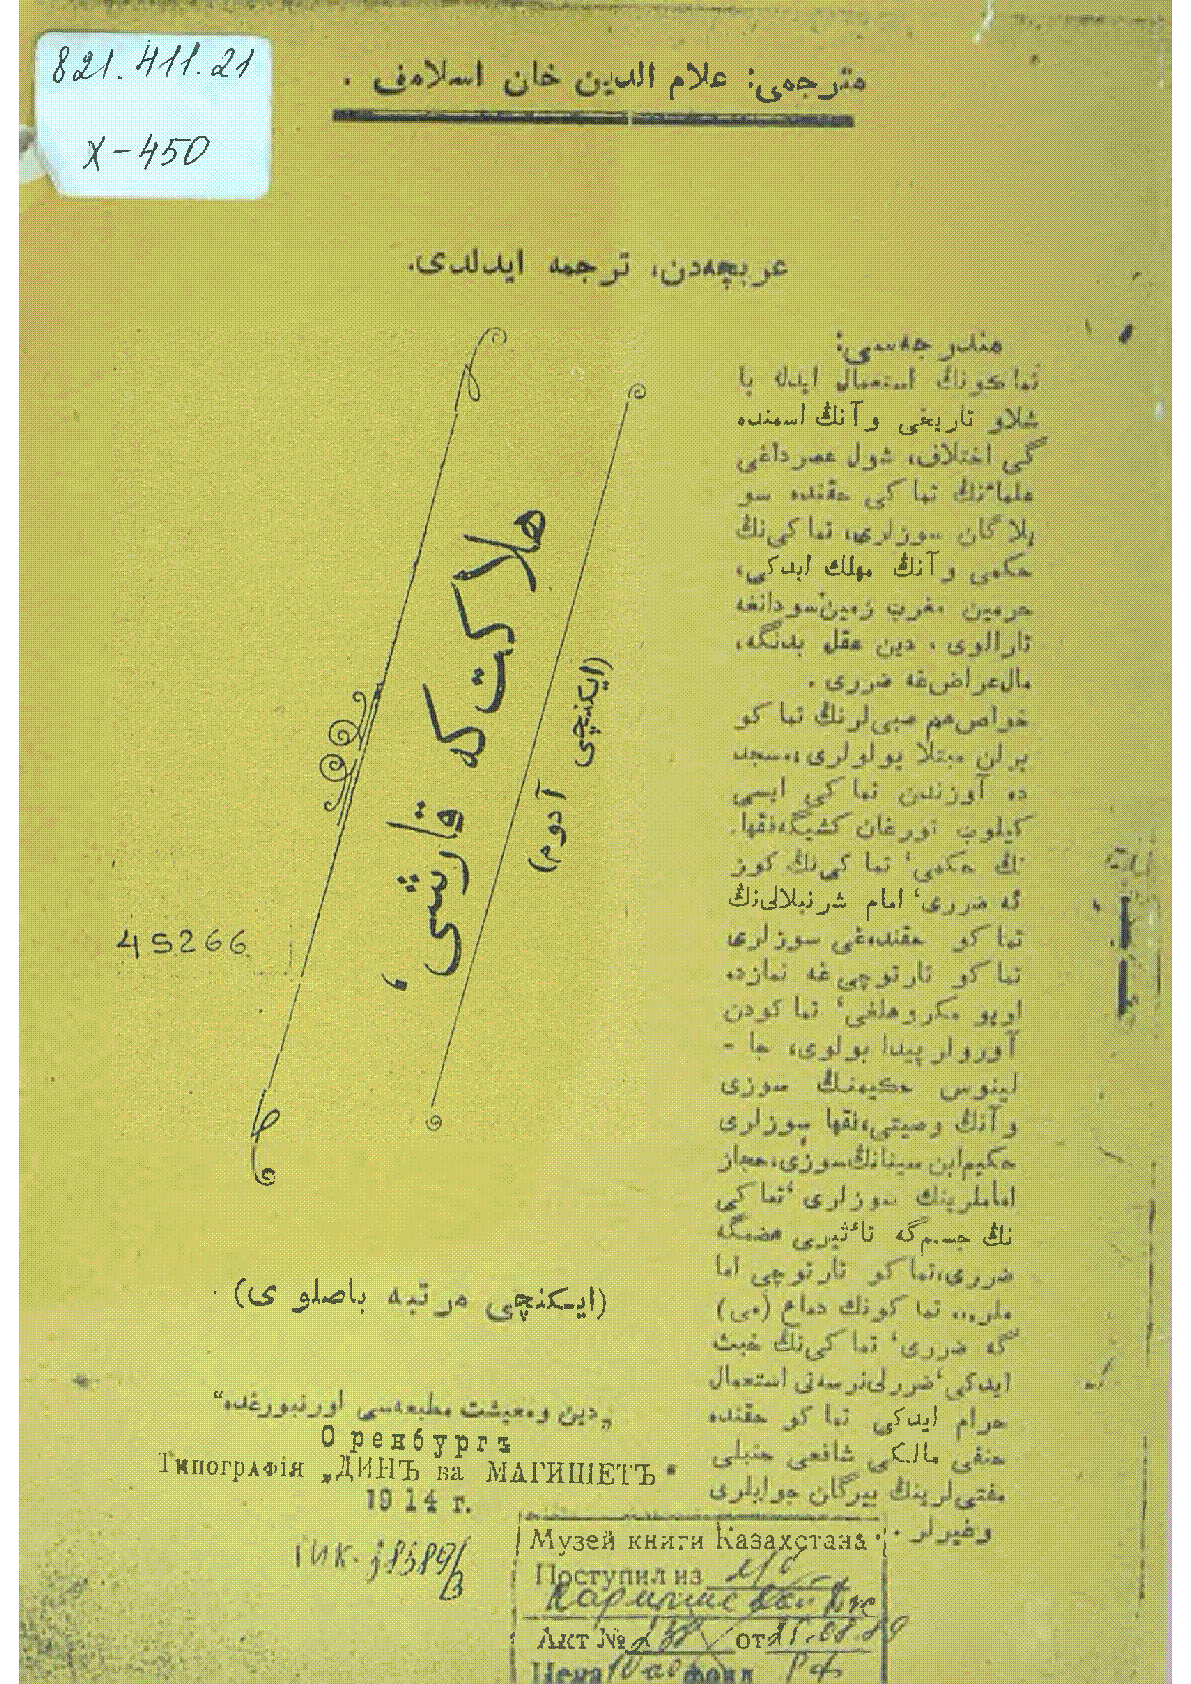 821.411.21
X-450
مترجمی: علام الدین خان اسلامی .
عربچه‌دن، ترجمه ایدلدی.
هلاکت‌که قارشی،
(ایکنچی آدوم)
مندرجه‌سی:
تماکونڭ استعمال ایدله با
شلاو تاریخی وآنڭ اسمنده
گی اختلاف، شول عصرداغی
علماءنڭ تماکی حقنده سو
یلاگان سوزلری، تماکی‌نڭ
حکمی وآنڭ مهلك ایدکی،
حرمین مغرب زمین‌سودانغه
تارالوی ، دین عقل بدنگه،
مال‌عراض‌غه ضرری .
خواص‌هم صبی‌لرنڭ تماکو
برلن مبتلا بولولری،مسجد
ده آوزندن تماکی ایسی
کیلوب تورغان کشیگه،فقها.
نڭ حکمی‘ تماکی‌نڭ کوز
گه ضرری‘ امام شرنبلالی‌نڭ
تماکو حقنده‌غی سوزلری
تماکو تارتوچی‌غه نمازده
اویو مکروهلغی‘ تماکودن
آورولر پیدا بولوی، جا -
لینوس حکیم‌نڭ سوزی
وآنڭ وصیتی،فقها سوزلری
حکیم‌ابن سینانڭ‌سوزی،حجاز
امام‌لرینڭ سوزلری ‘تماکی
نڭ جسم‌گه تاءثیری هضمگه
ضرری،تماکو تارتوچی اما
ملر... تماکونڭ دماغ (می)
گه ضرری‘ تماکی‌نڭ خبث
ایدکی‘ضررلی‌نرسه‌نی استعمال
حرام ایدکی تماکو حقنده
حنفی مالکی شافعی حنبلی
مفتی‌لرینڭ بیرگان جوابلری
وغیرلر .
45266
(ایکنچی مرتبه باصلوی)
„دین ومعیشت مطبعه‌سی اورنبورغده“
Оренбургъ
Типографія „ДИНЪ ва МАГИШЕТЪ"
1914 г.
Музей книги Казахстана
Поступил из
Акт № от
Цена фонд